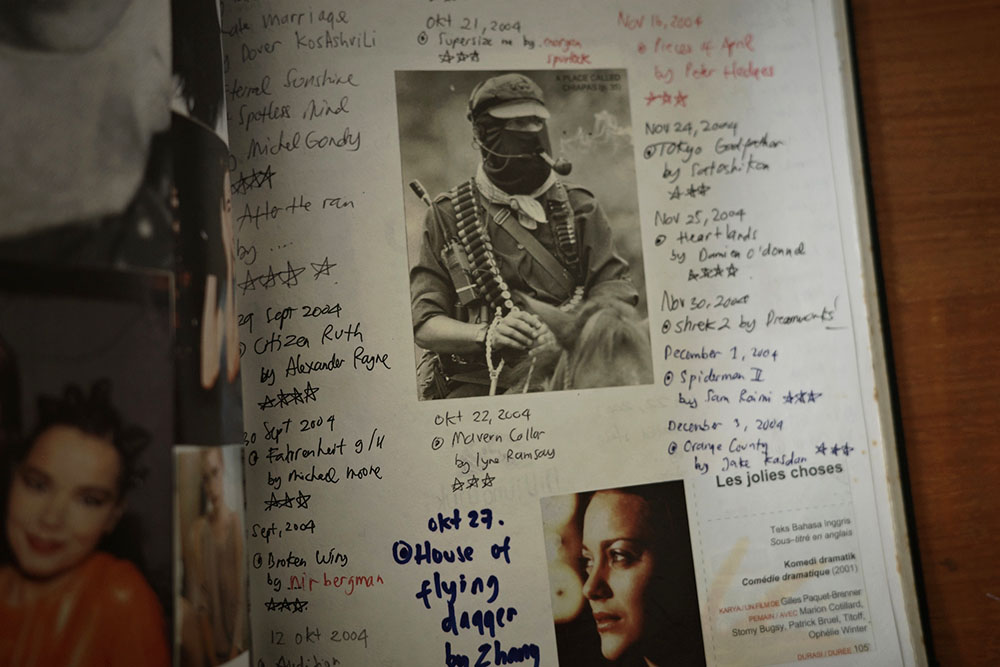 Late Marriage
Dover KosAshvili
Eternal Sunshine
Spotless Mind
Michel Gondry
After the rain
by ....
29 Sept 2004
Citizen Ruth
by Alexander Payne
30 Sept 2004
Fahrenheit 9/11
by micheal moore
Sept, 2004
Broken Wing
by nir bergman
12 okt 2004
Audition
okt 21, 2004
Supersize me by morgan
spurlock
A PLACE CALLED
CHIAPAS (p. 35)
okt 22, 2004
Malvern Collar
by lyne Ramsay
okt 27.
House of
flying
dagger
by Zhang
Nov 16, 2004
Pieces of April
by Peter Hedges
Nov 24, 2004
Tokyo Godfather
by Satoshi kon
Nov 25, 2004
Heartlands
by Damien o'donnel
Nov 30, 2004
shrek 2 by Dreamworks!
December 1, 2004
Spiderman II
by Sam Raimi
December 3, 2004
Orange County
by Jake Kasdan
Les jolies choses
Teks Bahasa Inggris
Sous-titré en anglais
Komedi dramatik
Comédie dramatique (2001)
KARYA / UN FILM DE Gilles Paquet-Brenner
PEMAIN / AVEC Marion Cotillard,
Stomy Bugsy, Patrick Bruel, Titoff,
Ophélie Winter
DURASI / DURÉE 105'